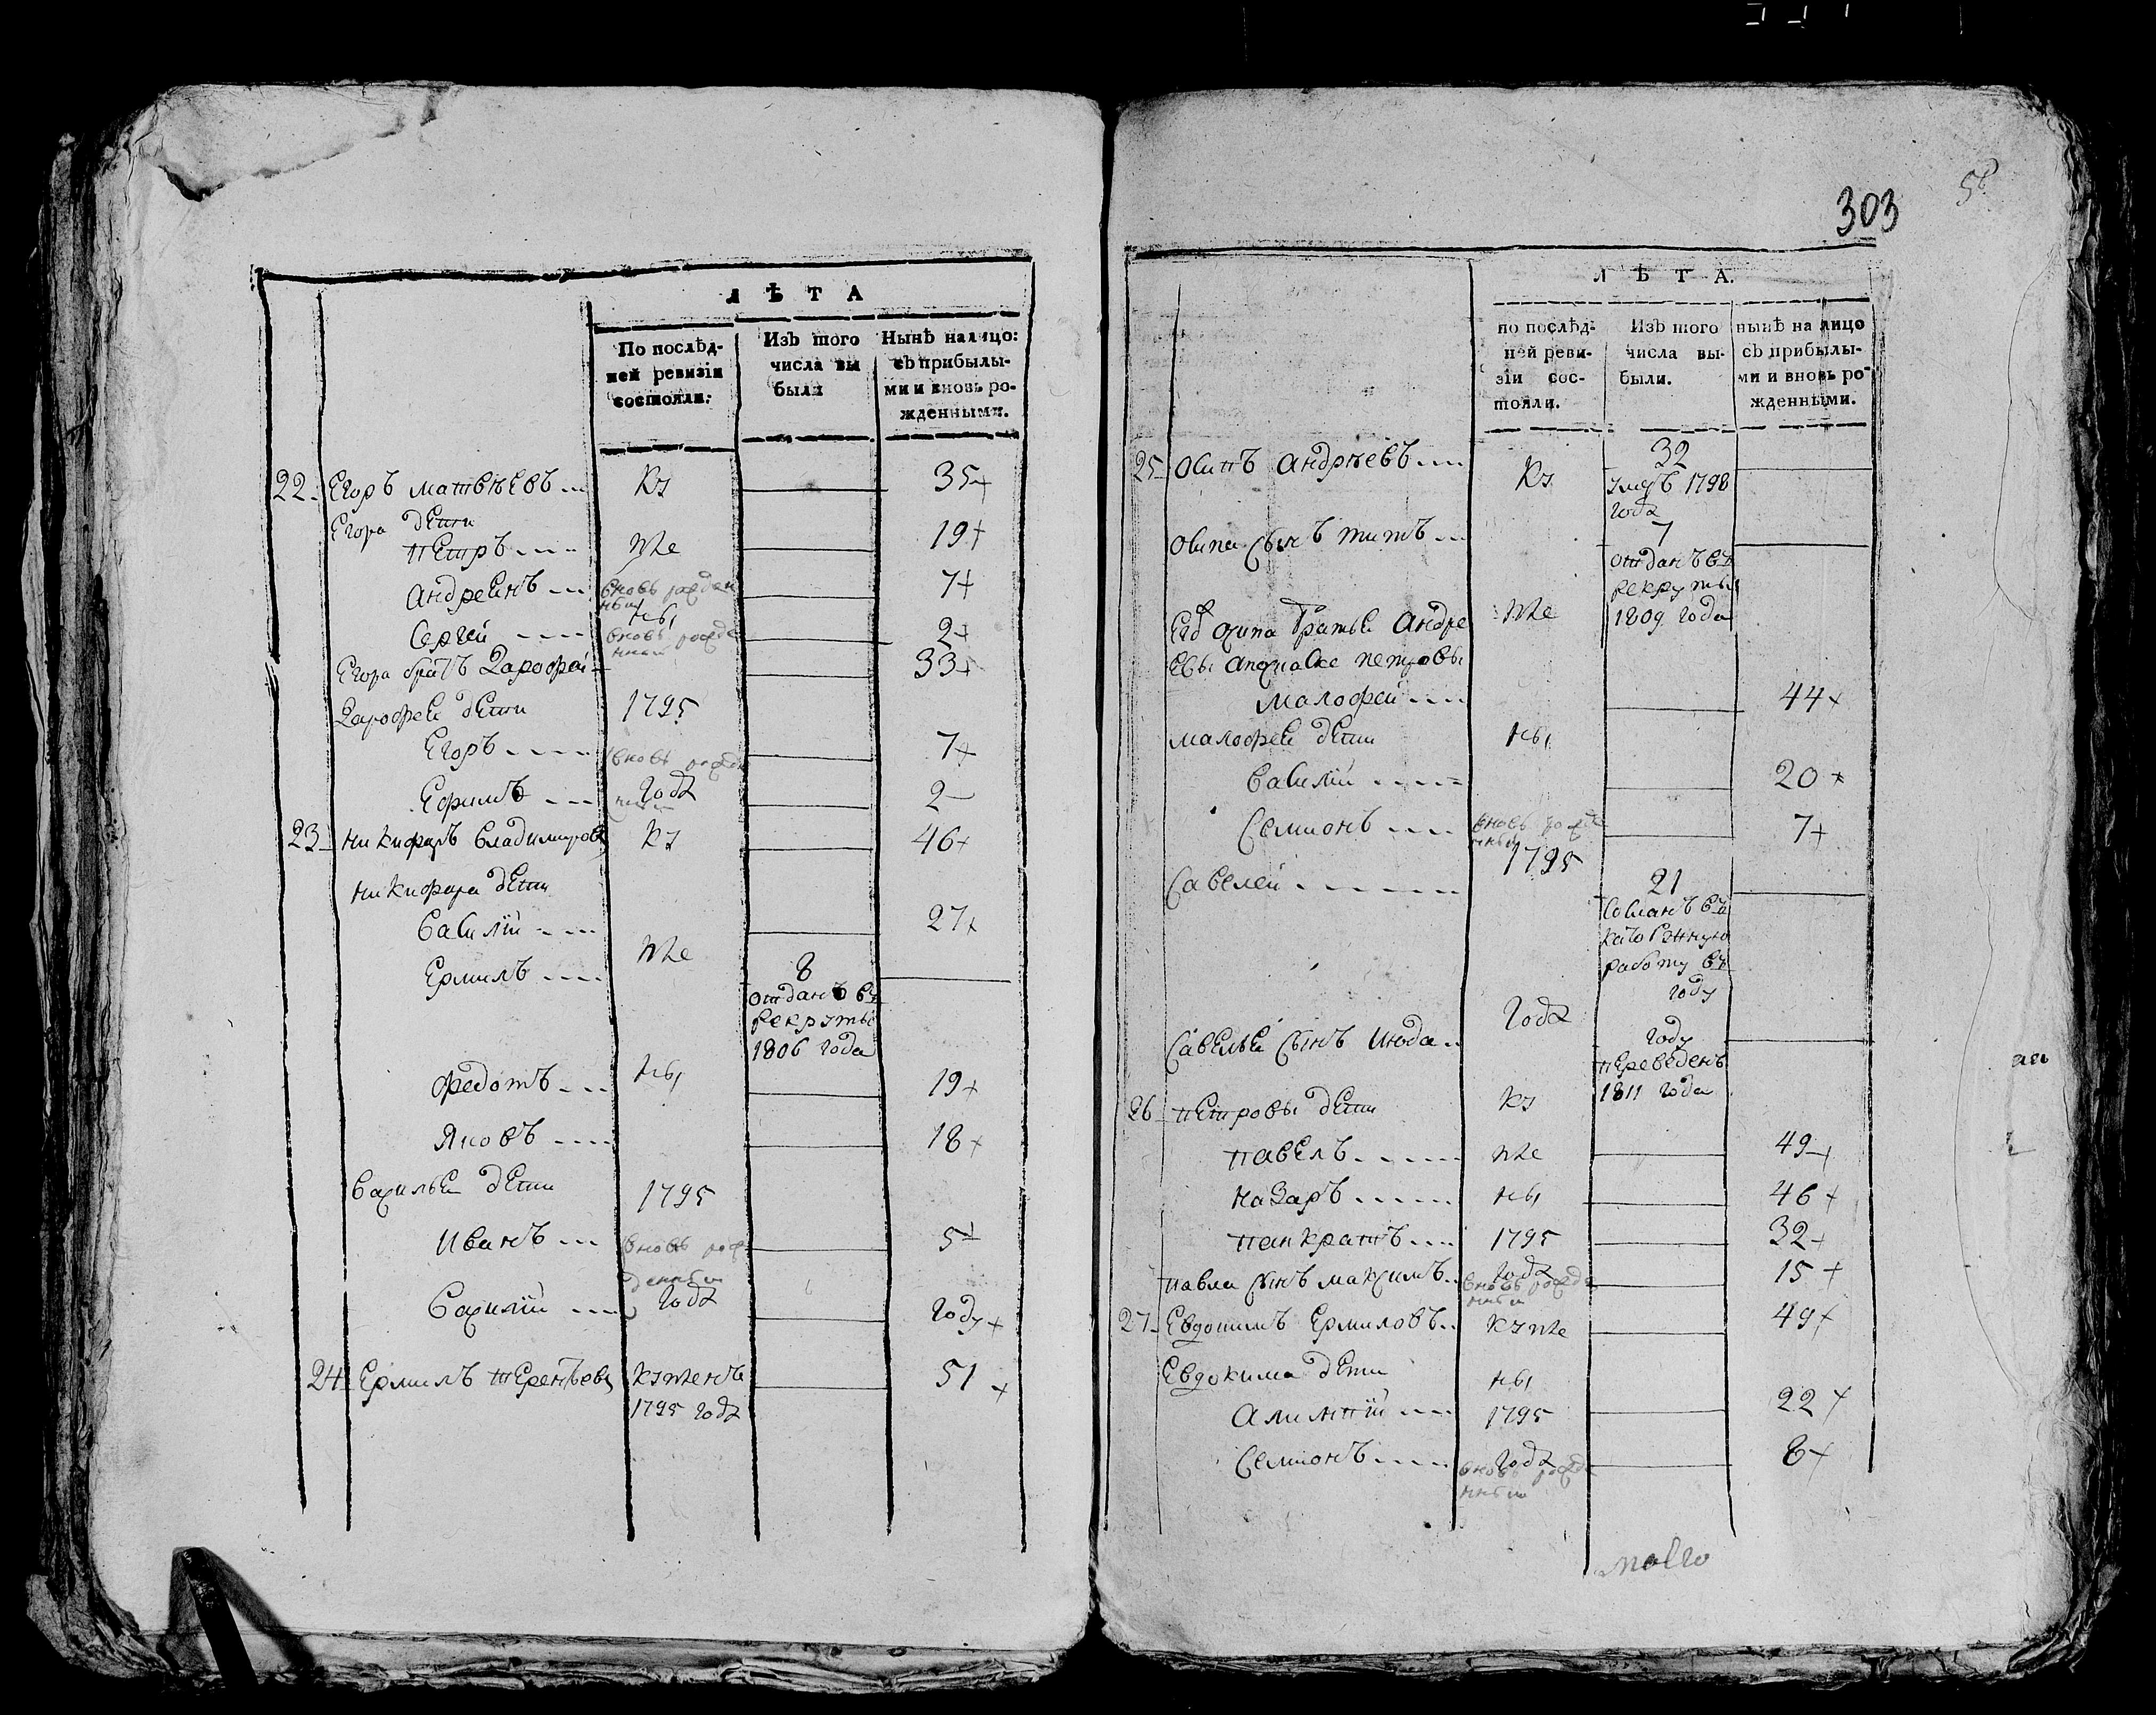 ЛѢТА
По послѣд-
ней ревизіи
состояли:
Изъ того
числа вы
были
Нынѣ налицо:
съ прибылы-
ми и вновь ро-
жденными.
22. Егоръ Матвѣевъ Кз 35
Егора дети
Петръ 19
Андреянъ вновь рожден 7
ный
Сергей вновь рожде 2
нный
Егора братъ Дарофей 33
Дарофея дети 1795
Егоръ вновь рожде 7
Ефимъ года 2
23 Никифоръ Владимеровъ Кз 46
Никифора дети
Василiй 27
Ермилъ 8
отданъ въ
рекруты
1806 года
Федотъ ны 19
Яковъ 18
Василья дети 1795
Иванъ вновь рож 5
денныи
Василiй года году
24 Ермилъ Терентьевъ 51
1795 года
303
ЛѢТА.
по послѣд-
ней реви-
зіи сос-
тояли.
Изъ того
числа вы-
были.
нынѣ на лицо
съ прибылы-
ми и вновь ро-
жденными.
25 Осипъ Андрѣевъ Кз 32
умеръ 1798
года
Осипа сынъ Титъ 7
отданъ въ
рекруты
1809 года
Его Осипа братья Андре
евы Петровы
Малофей 44
Малофея дети ны
Василiй 20
Семионъ вновь рожде 7
нный
1795
Савелей 21
Сосланъ въ
работу въ
году
года
Савелья сынъ году
переведенъ
1811 года
26 Петровы дети Кз
Павелъ 49
Назаръ ны 46
Панкратъ 1795 32
Павла сынъ Максимъ года 15
вновь рожде
нный
27 Евдокимъ Ермиловъ 49
Евдокима дети ны
Алимпiй 1795 22
Семионъ года 8
вновь рожде
нный